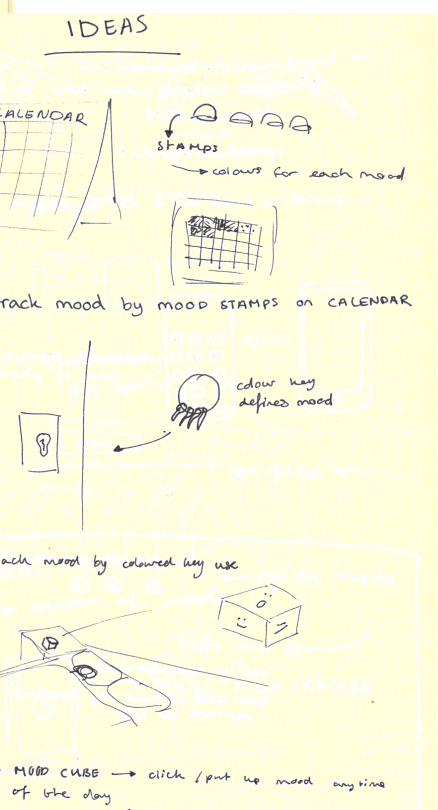 IDEAS
CALENDAR
STAMPS
colours for each mood
rack mood by MOOD STAMPS on CALENDAR
colour key
defines mood
ack mood by coloured key use
MOOD CUBE → click / put up mood anytime
of the day